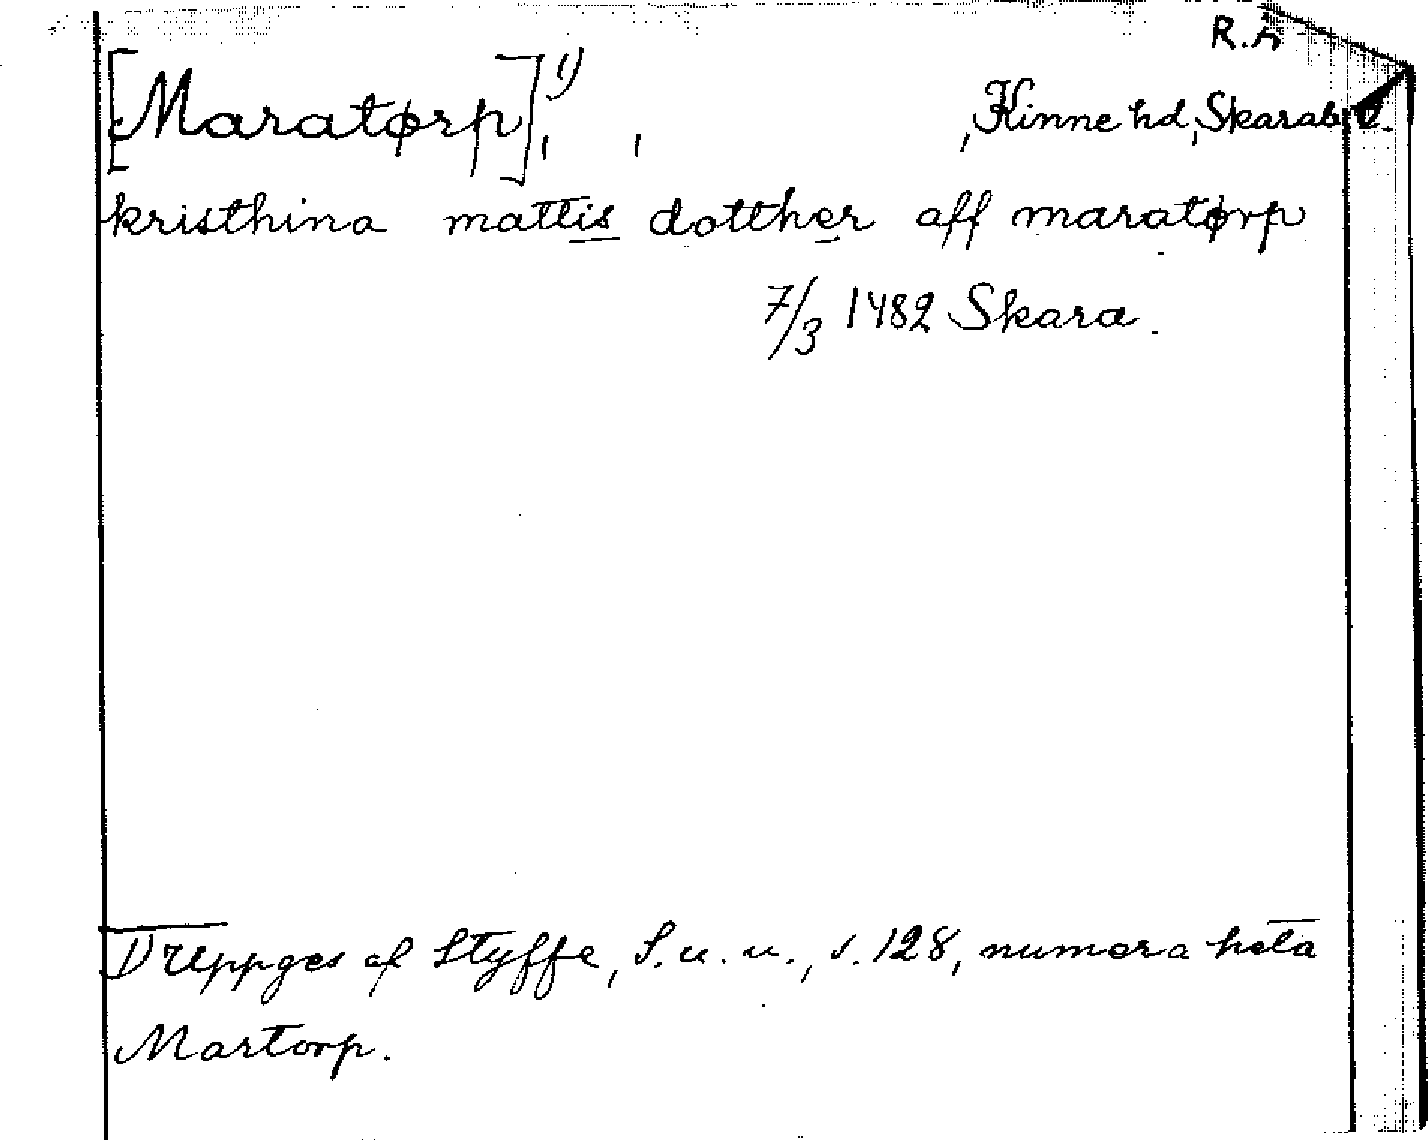 R.A
[Maratørp]¹⁾, , , Kinne hd, Skarab. l.
kristhina mattis dotther aff maratørp
7/3 1482 Skara.
1) Uppges af Styffe, S. u. u., s. 128, numera heta
Martorp.